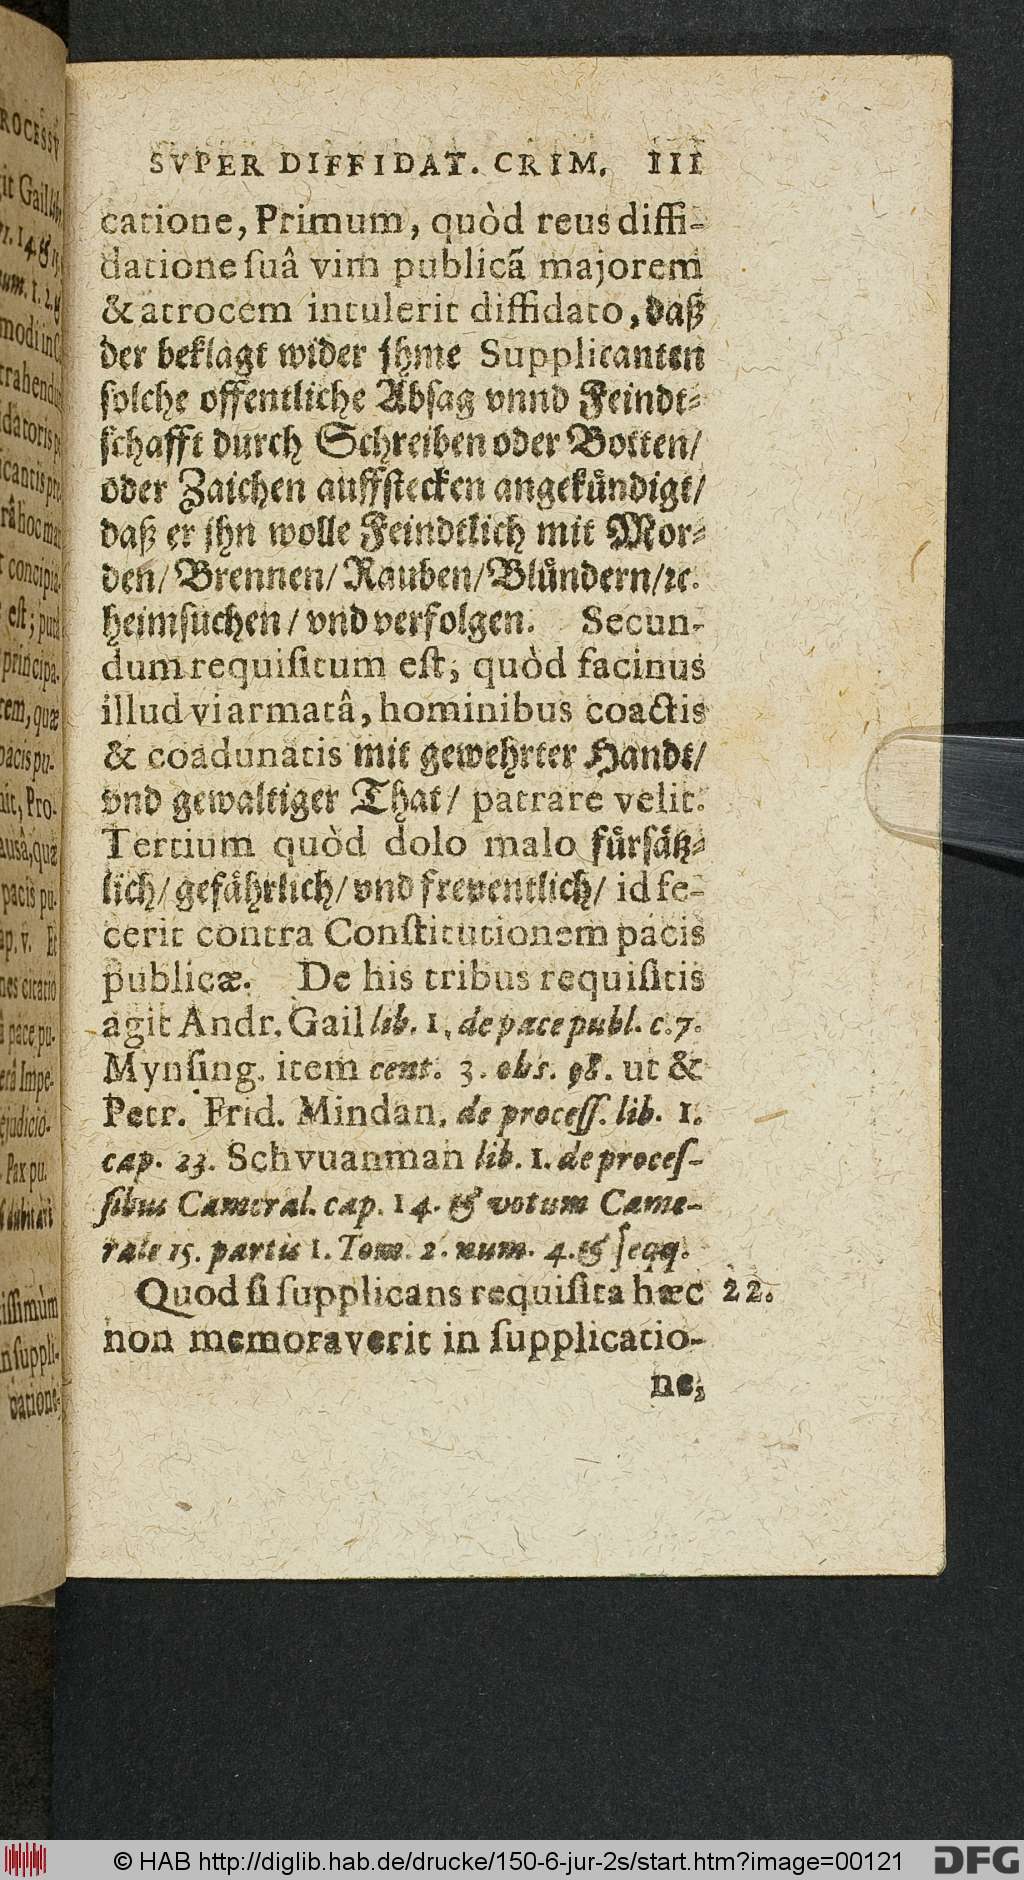 SVPER DIFFIDAT. CRIM. 111
catione, Primum, quòd reus diffi-
datione ſuâ vim publicã majorem
& atrocem intulerit diffidato, daß
der beklagt wider jhme Supplicanten
ſolche offentliche Abſag vnnd Feindt-
ſchafft durch Schreiben oder Botten/
oder Zaichen auffſtecken angekuͤndigt/
daß er jhn wolle Feindtlich mit Mor-
den/ Brennen/ Rauben/ Bluͤndern/ ꝛc.
heimſuchen / vnd verfolgen. Secun-
dum requiſitum eſt, quòd facinus
illud vi armatâ, hominibus coactis
& coadunatis mit gewehrter Handt/
vnd gewaltiger That/ patrare velit.
Tertium quòd dolo malo fuͤrſaͤtz-
lich/ gefaͤhrlich/ vnd freventlich/ id fe-
cerit contra Conſtitutionem pacis
publicæ. De his tribus requiſitis
agit Andr. Gail lib. 1. de pace publ. c. 7.
Mynſing. item cent. 3. obs. 98. ut &
Petr. Frid. Mindan. de proceſſ. lib. 1.
cap. 23. Schvuanman lib. 1. de proceſ-
ſibus Cameral. cap. 14. & votum Came-
rale 15. partis 1. Tom. 2. num. 4. & ſeqq.
Quod ſi ſupplicans requiſita hæc 22.
non memoraverit in ſupplicatio-
ne,
© HAB http://diglib.hab.de/drucke/150-6-jur-2s/start.htm?image=00121
DFG